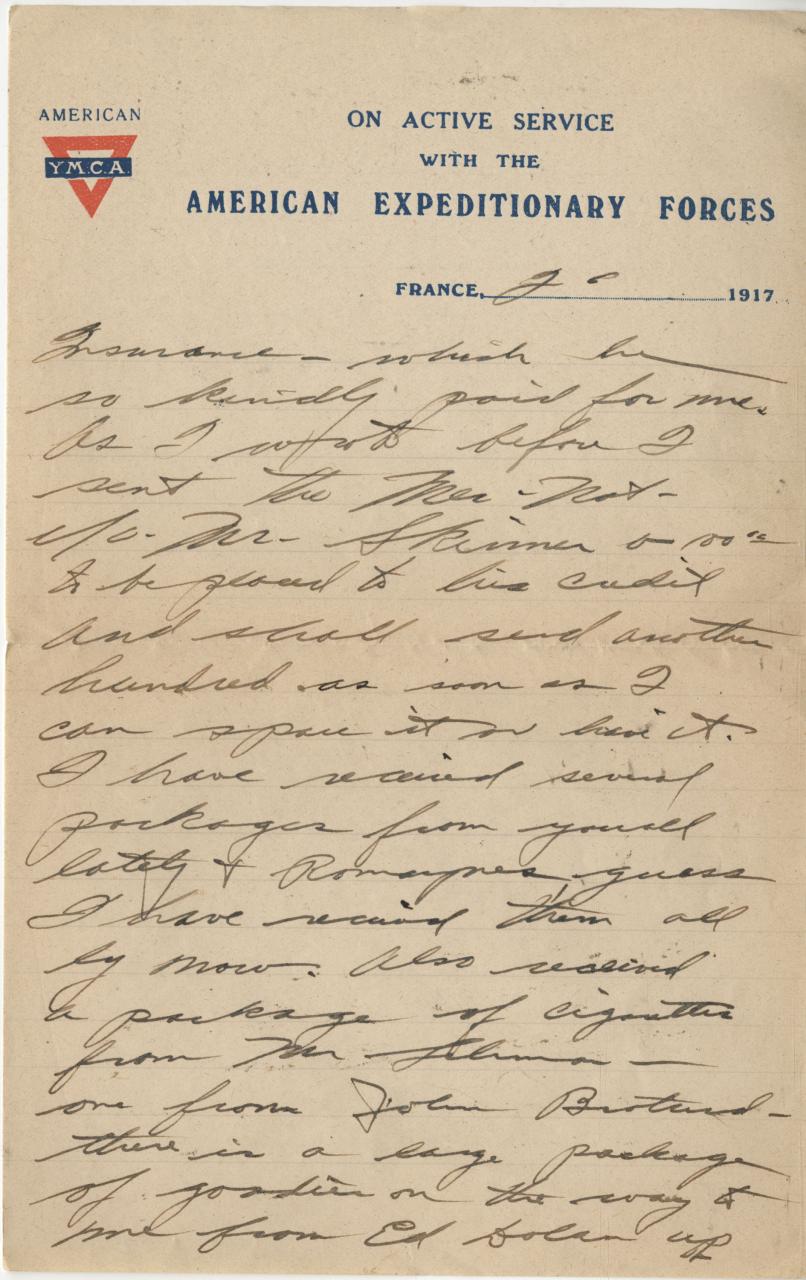 AMERICAN
Y.M.C.A.
ON ACTIVE SERVICE
WITH THE
AMERICAN EXPEDITIONARY FORCES
FRANCE, 1917
Insurance - which he
so kindly paid for me.
As I wrote before I
sent the Mer - Nat -
c/o - Mr - Skinner 00
to be placed to his credit
and shall send another
hundred as soon as I
can spare it or have it.
I have received several
packages from youall
lately & Romaynes guess
I have received them all
by now. Also received
a package of cigarettes
from Mr
one from John
there is a large package
of goodies on the way to
me from Ed Dolan up